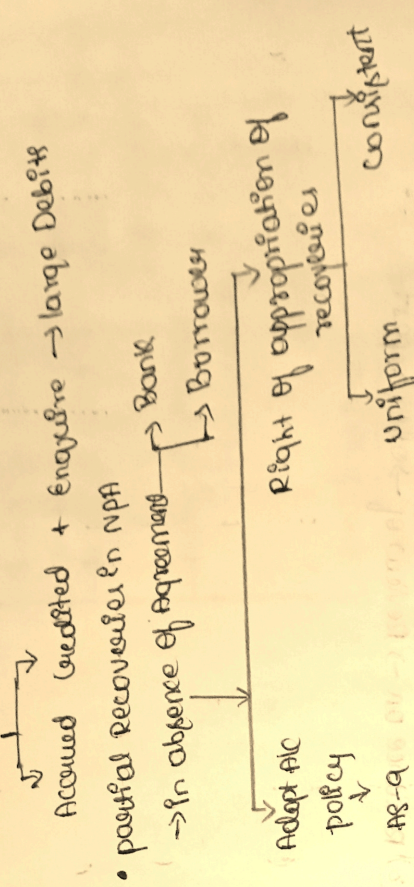 Accrued Credited + Enquire → large Debits
• partial Recoveries in NPA
→ in absence of Agreement → Bank
→ Borrower
Adopt A/C policy
↓
AS-9
Right of appropriation of
recoveries
uniform
consistent